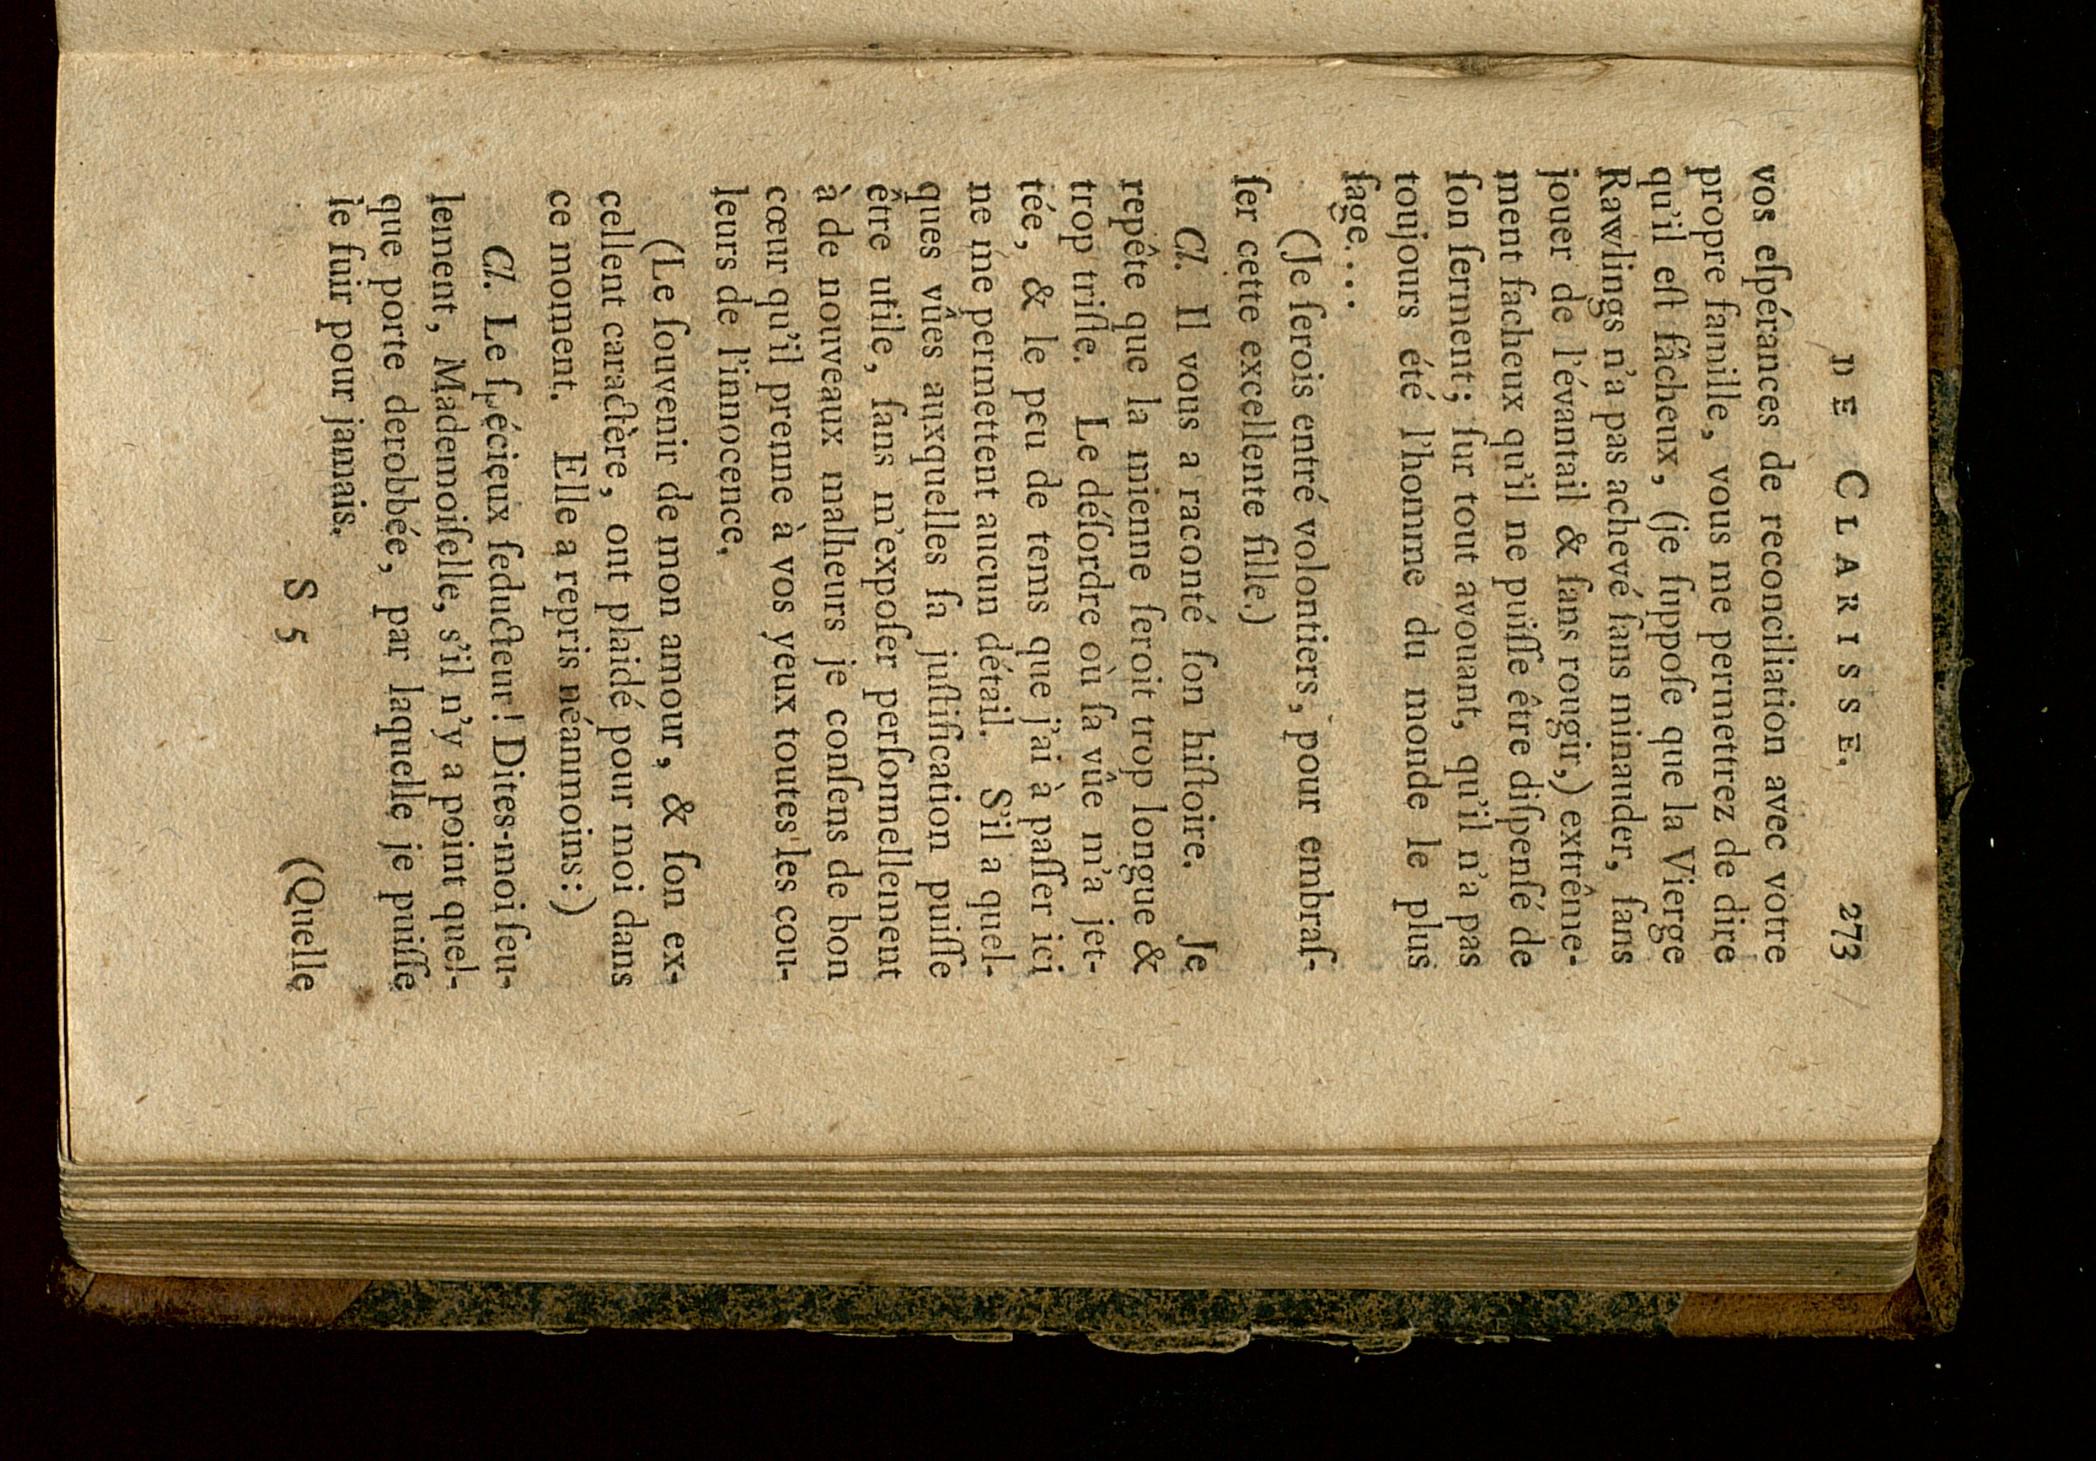 DE CLARISSE. 273
vos eſpérances de reconciliation avec votre
propre famille, vous me permettrez de dire
qu'il eſt fâcheux, (je ſuppoſe que la Vierge
Rawlings n'a pas achevé ſans minauder, ſans
jouer de l'évantail & ſans rougir,) extrême-
ment facheux qu'il ne puiſſe être diſpenſé de
ſon ſerment; ſur tout avouant, qu'il n'a pas
toujours été l'homme du monde le plus
ſage....
(Je ſerois entré volontiers, pour embraſ-
ſer cette excellente fille.)
Cl. Il vous a raconté ſon hiſtoire. Je
repête que la mienne ſeroit trop longue &
trop triſte. Le déſordre où ſa vûe m'a jet-
tée, & le peu de tems que j'ai à paſſer ici
ne me permettent aucun détail. S'il a quel-
ques vûes auxquelles ſa juſtification puiſſe
être utile, ſans m'expoſer perſonnellement
à de nouveaux malheurs je conſens de bon
cœur qu'il prenne à vos yeux toutes les cou-
leurs de l'innocence.
(Le ſouvenir de mon amour, & ſon ex-
cellent caractère, ont plaidé pour moi dans
ce moment. Elle a repris néanmoins:)
Cl. Le ſpécieux ſeducteur! Dites-moi ſeu-
lement, Mademoiſelle, s'il n'y a point quel-
que porte derobbée, par laquelle je puiſſe
le fuir pour jamais.
S 5 (Quelle